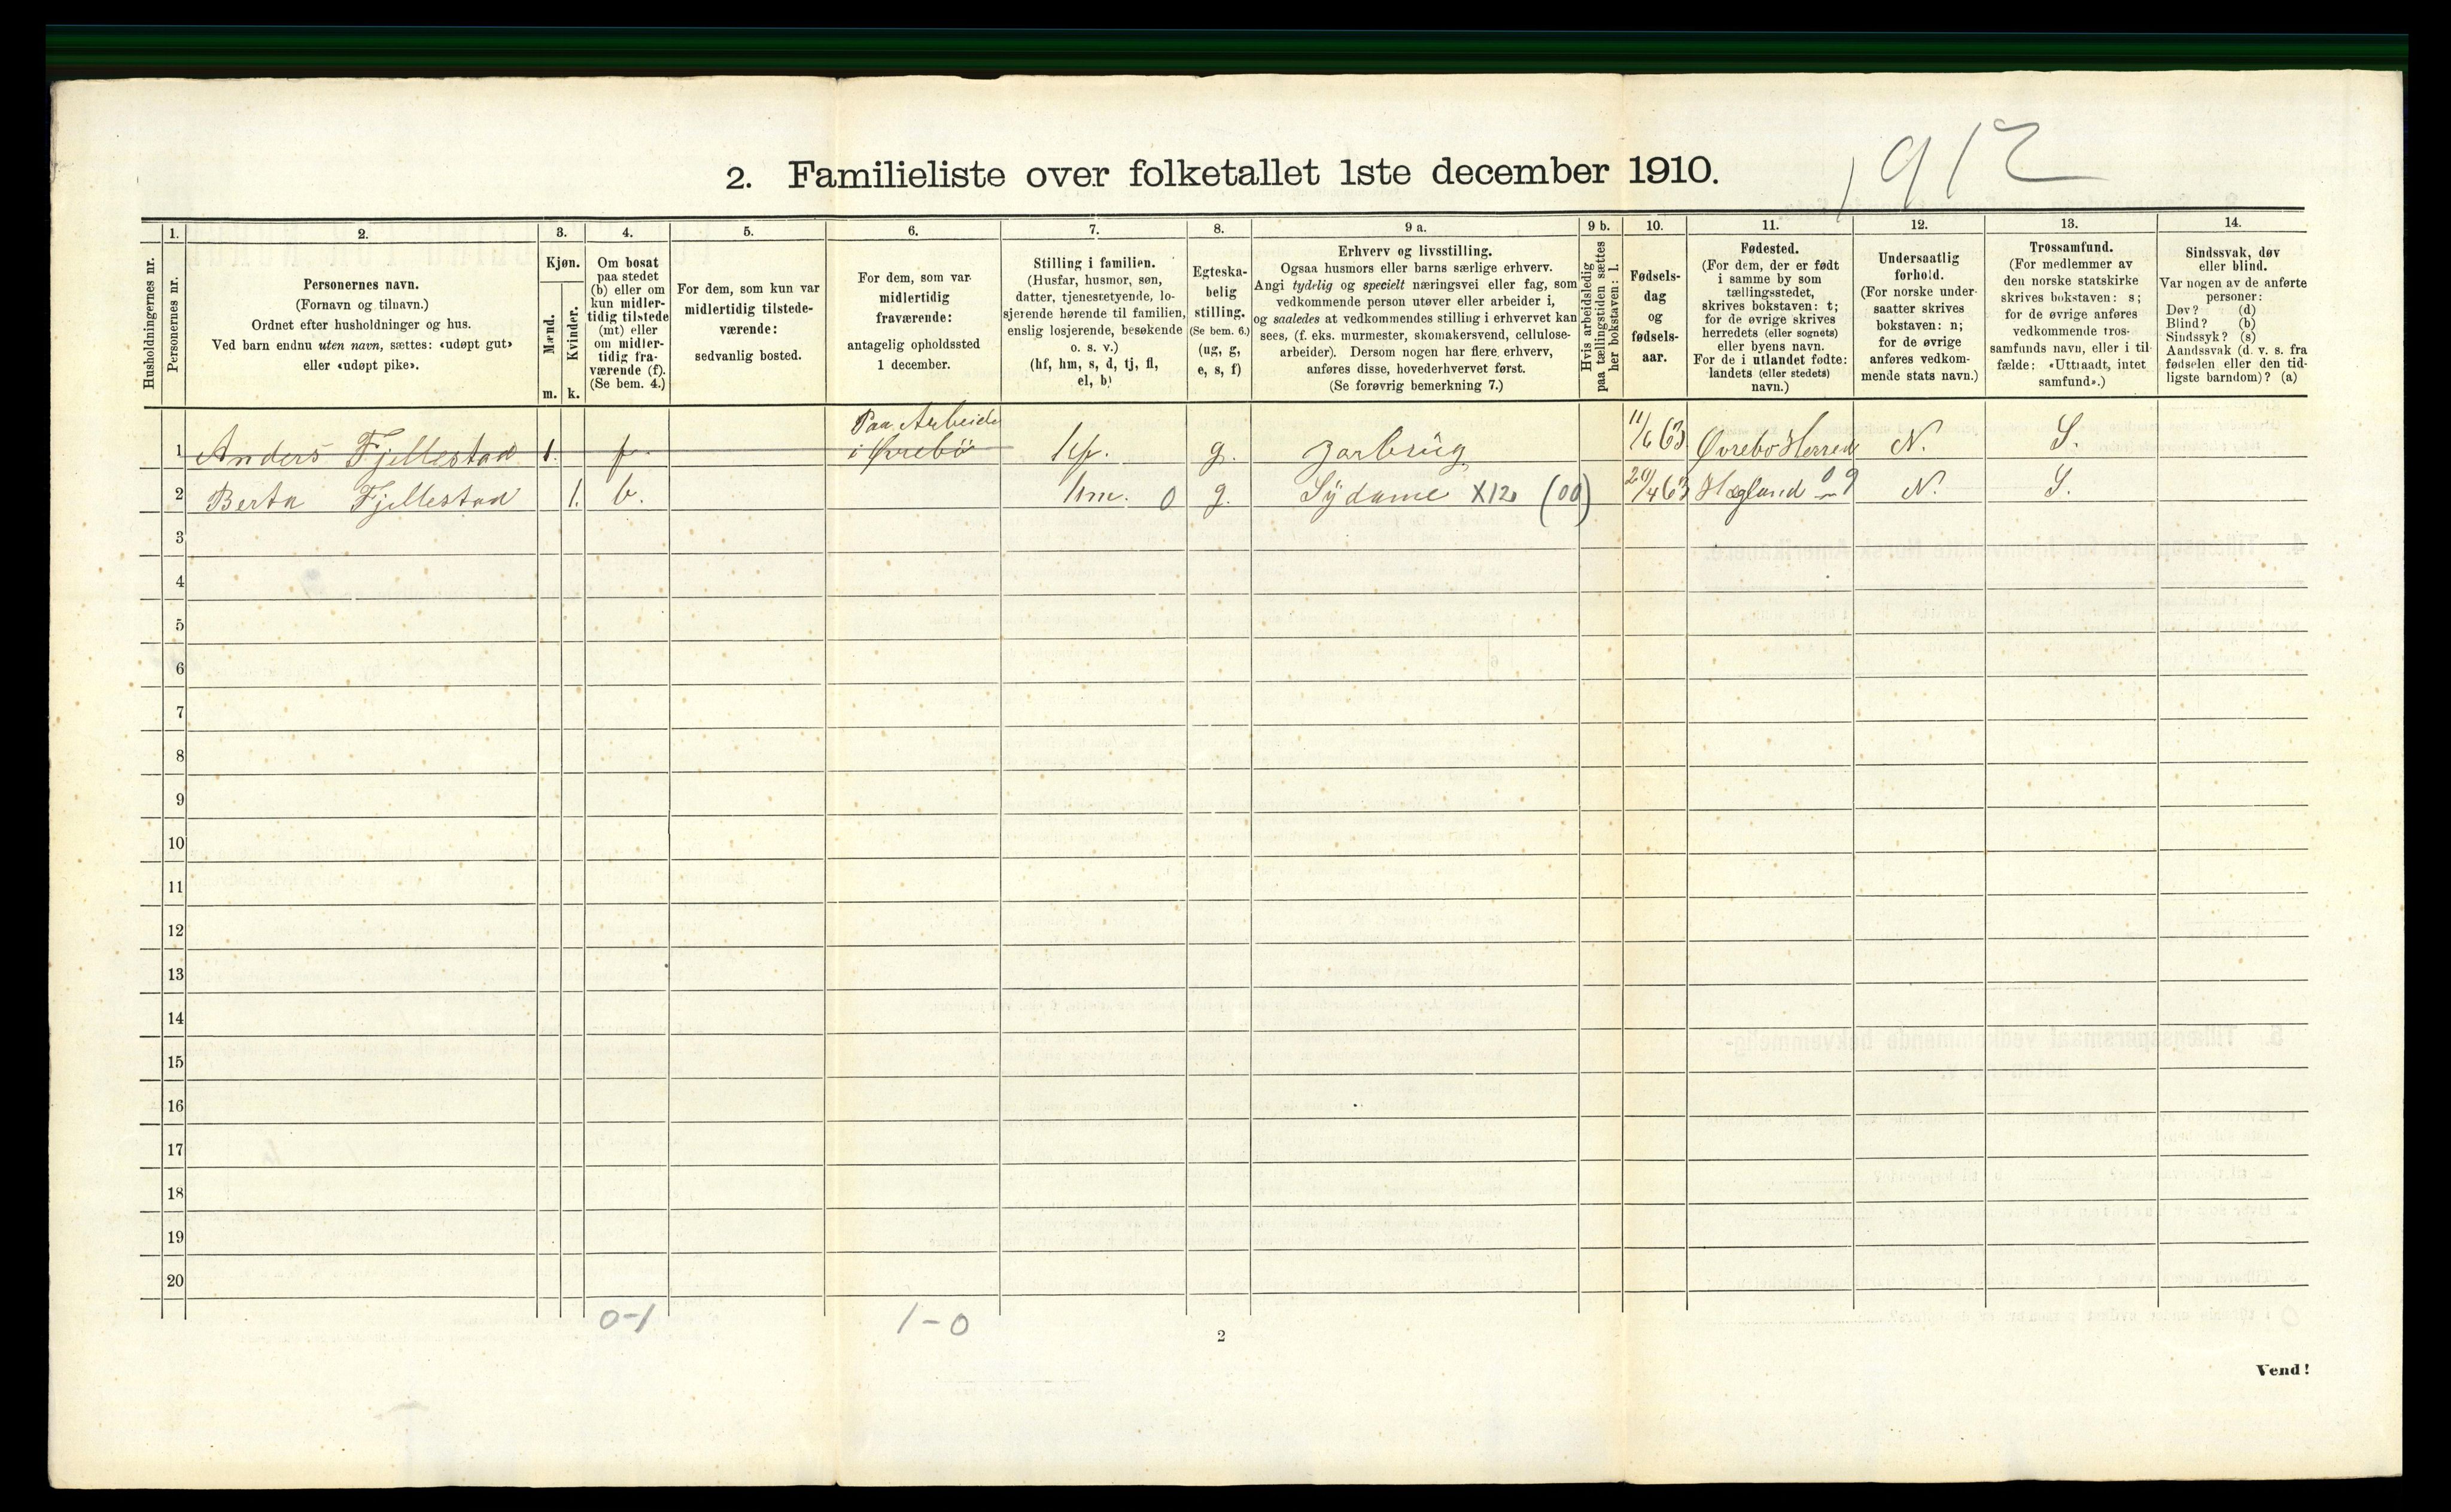 1912
2. Familieliste over folketallet 1ste december 1910.
1. 2. 3. 4. 5. 6. 7. 8. 9 a. 9 b. 10. 11. 12. 13. 14.
Husholdningernes nr.
Personernes nr.
Personernes navn.
(Fornavn og tilnavn.)
Ordnet efter husholdninger og hus.
Ved barn endnu uten navn, sættes: «udøpt gut»
eller «udøpt pike».
Kjøn.
Mænd.
Kvinder.
m. k.
Om bosat
paa stedet
(b) eller om
kun midler-
tidig tilstede
(mt) eller
om midler-
tidig fra-
værende (f).
(Se bem. 4.)
For dem, som kun var
midlertidig tilstede-
værende:
sedvanlig bosted.
For dem, som var
midlertidig
fraværende:
antagelig opholdssted
1 december.
Stilling i familien.
(Husfar, husmor, søn,
datter, tjenestetyende, lo-
sjerende hørende til familien,
enslig losjerende, besøkende
o. s. v.)
(hf, hm, s, d, tj, fl,
el, b)
Egteska-
belig
stilling.
(Se bem. 6.)
(ug, g,
e, s, f)
Erhverv og livsstilling.
Ogsaa husmors eller barns særlige erhverv.
Angi tydelig og specielt næringsvei eller fag, som
vedkommende person utøver eller arbeider i,
og saaledes at vedkommendes stilling i erhvervet kan
sees, (f. eks. murmester, skomakersvend, cellulose-
arbeider). Dersom nogen har flere erhverv,
anføres disse, hovederhvervet først.
(Se forøvrig bemerkning 7.)
Hvis arbeidsledig
paa tællingstiden sættes
her bokstaven: l.
Fødsels-
dag
og
fødsels-
aar.
Fødested.
(For dem, der er født
i samme by som
tællingsstedet,
skrives bokstaven: t;
for de øvrige skrives
herredets (eller sognets)
eller byens navn.
For de i utlandet fødte:
landets (eller stedets)
navn.)
Undersaatlig
forhold.
(For norske under-
saatter skrives
bokstaven: n;
for de øvrige
anføres vedkom-
mende stats navn.)
Trossamfund.
(For medlemmer av
den norske statskirke
skrives bokstaven: s;
for de øvrige anføres
vedkommende tros-
samfunds navn, eller i til-
fælde: «Uttraadt, intet
samfund».)
Sindssvak, døv
eller blind.
Var nogen av de anførte
personer:
Døv? (d)
Blind? (b)
Sindssyk? (s)
Aandssvak (d. v. s. fra
fødselen eller den tid-
ligste barndom)? (a)
1 Anders Fjellestad 1. f. Paa Arbeide i Øvrebö hf. g. Jarbrüg 11/6 63 Øvrebo Herred N. S.
2 Berta Fjellestad 1. b. hm. 0 g. Sÿdame X12 (00) 20/4 63 Hægland N. S.
3
4
5
6
7
8
9
10
11
12
13
14
15
16
17
18
19
20
0-1 1-0
2
Vend!